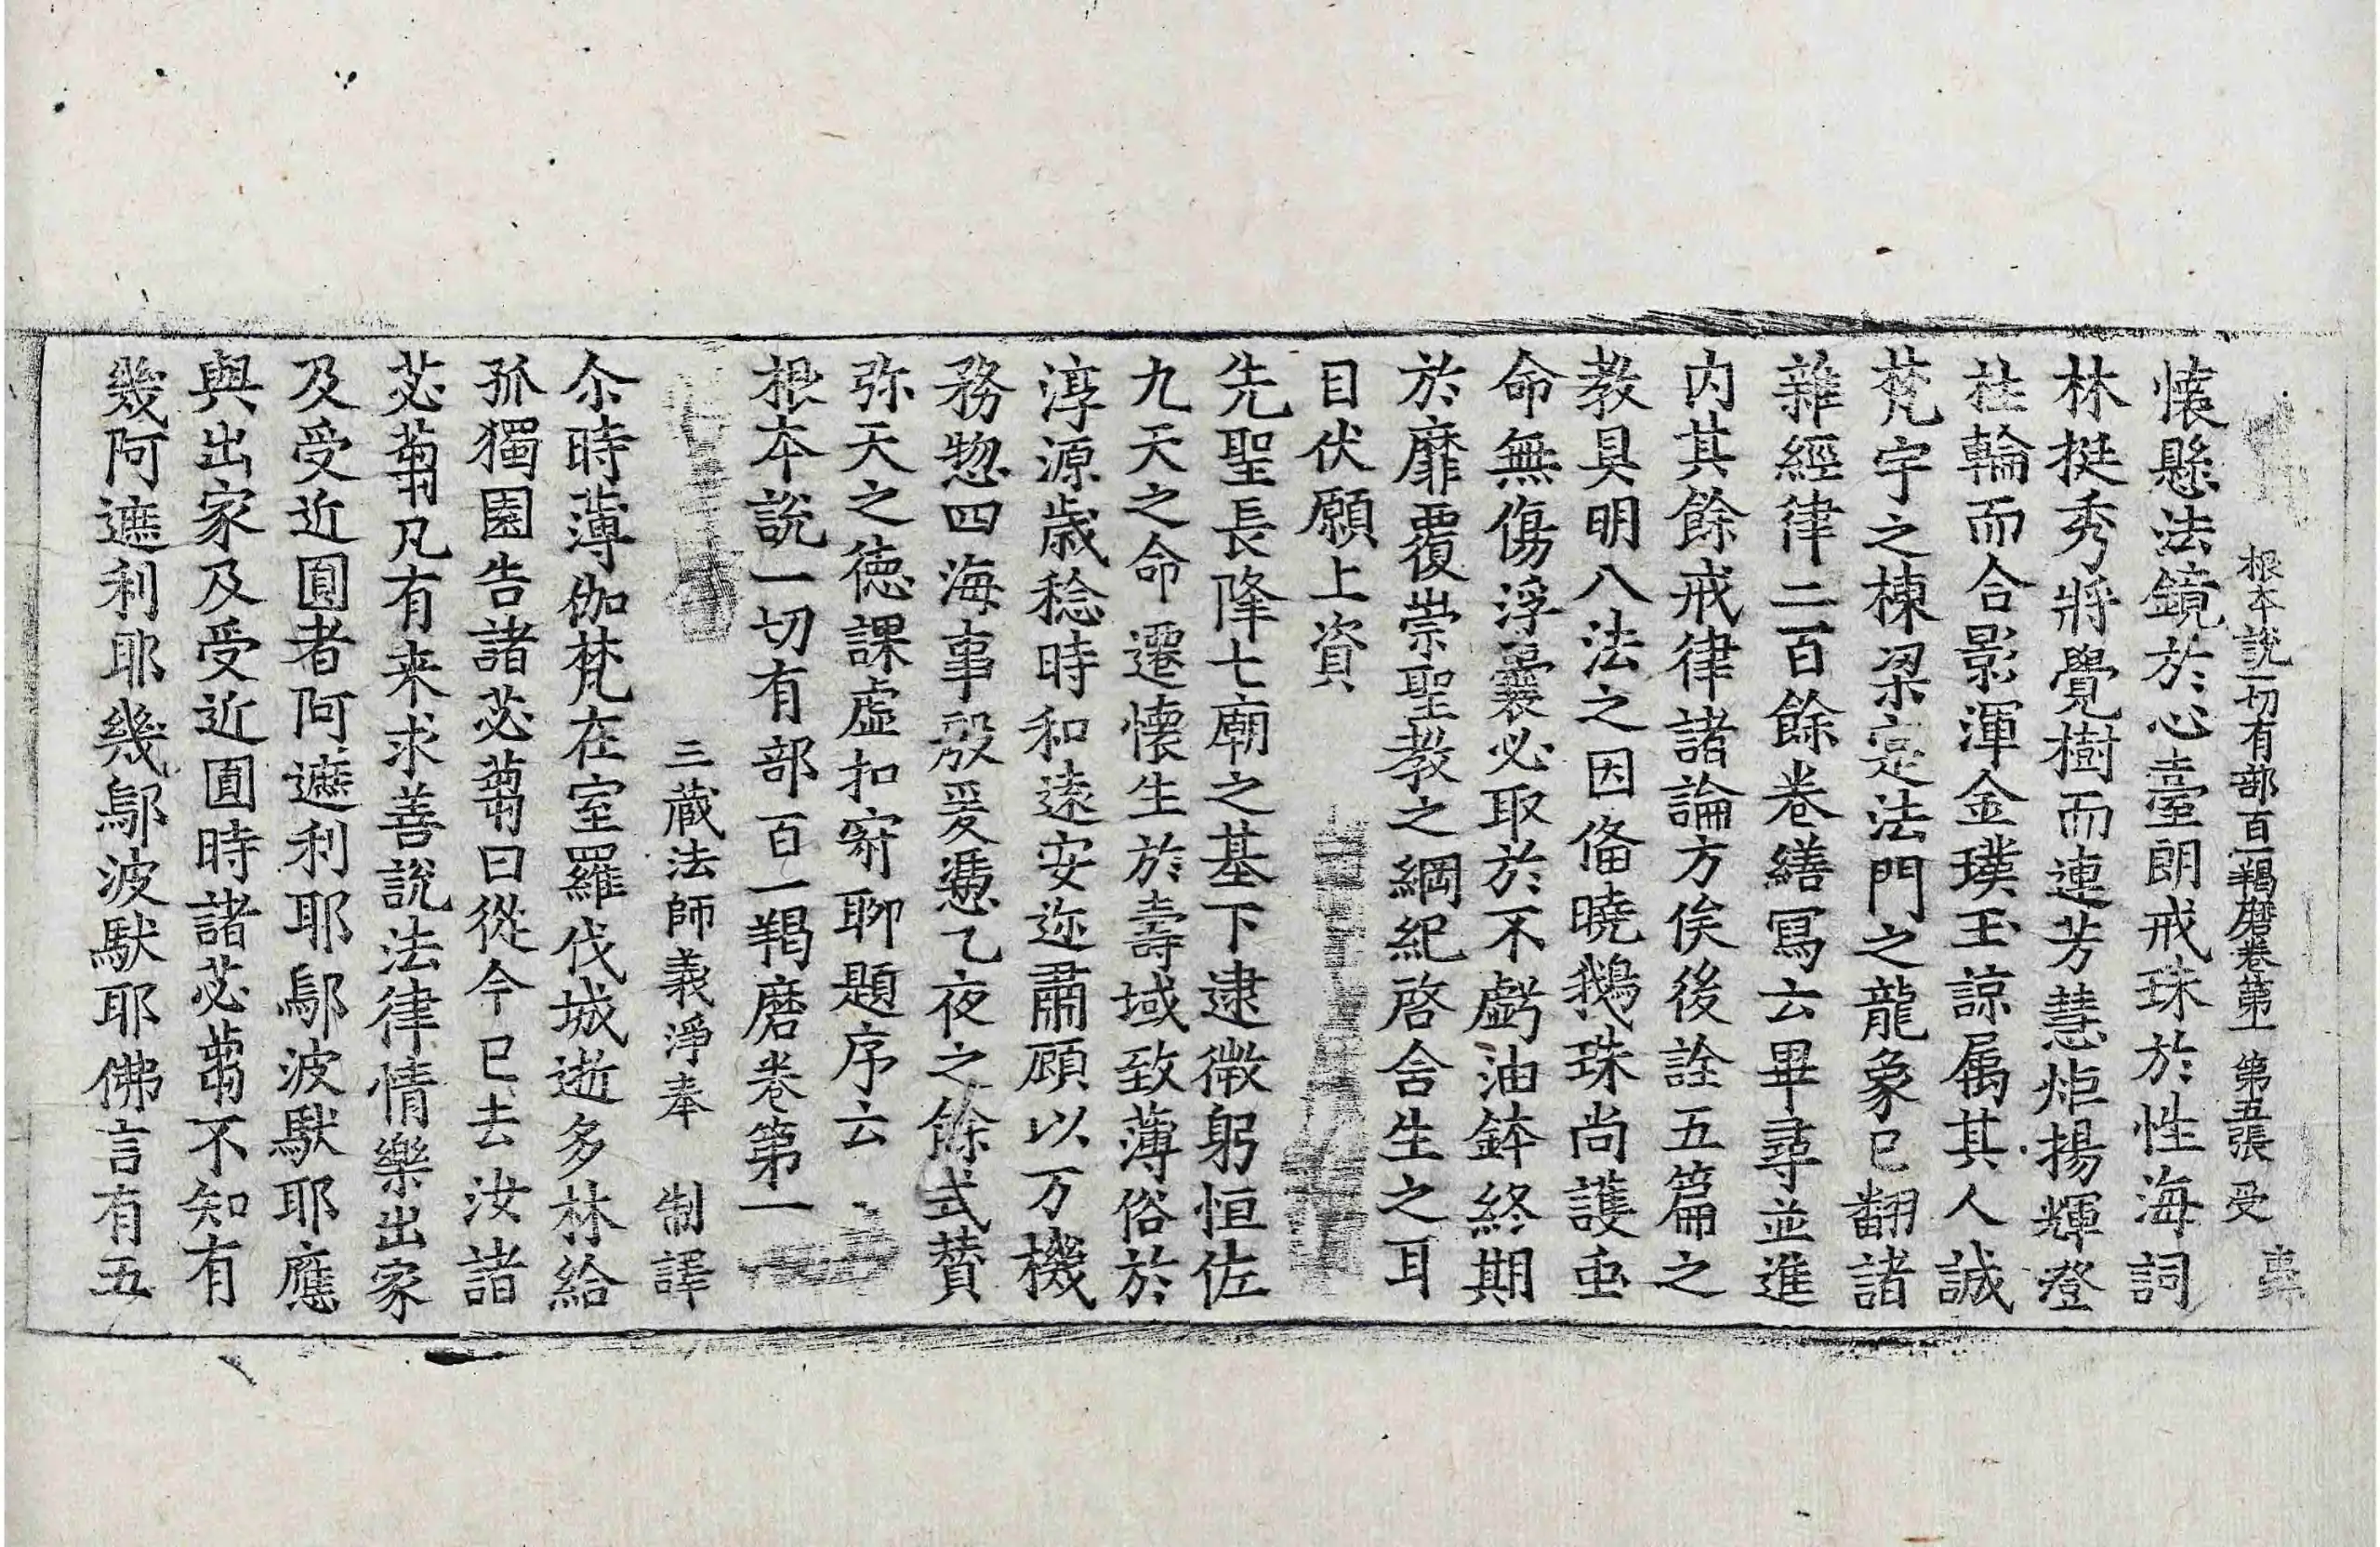 根本說一切有部百一羯磨卷第一 第五張 受
懷懸法鏡於心臺朗戒珠於性海詞
林挺秀將覺樹而連芳慧炬揚輝澄
桂輪而合影渾金璞玉諒属其人誠
梵宇之棟梁寔法門之龍象已翻諸
雜經律二百餘卷繕寫云畢尋並進
内其餘戒律諸論方俟後詮五篇之
教具明八法之因俻曉鵝珠尚護䖝
命無傷浮囊必取於不虧油鉢終期
於靡覆崇聖教之綱紀啓含生之耳
目伏願上資
先聖長隆七廟之基下逮微躬恒佐
九天之命遷懷生於壽域致薄俗於
淳源歳稔時和遠安迩肅顧以万機
務惣四海事殷爰憑乙夜之餘式賛
弥天之徳課虛扣寂聊題序云
根本說一切有部百一羯磨卷第一
三蔵法師義淨奉 制譯
尒時薄伽梵在室羅伐城逝多林給
孤獨園告諸苾芻曰從今已去汝諸
苾芻凡有来求善說法律情樂出家
及受近圓者阿遮利耶鄔波馱耶應
與出家及受近圓時諸苾芻不知有
幾阿遮利耶幾鄔波馱耶佛言有五